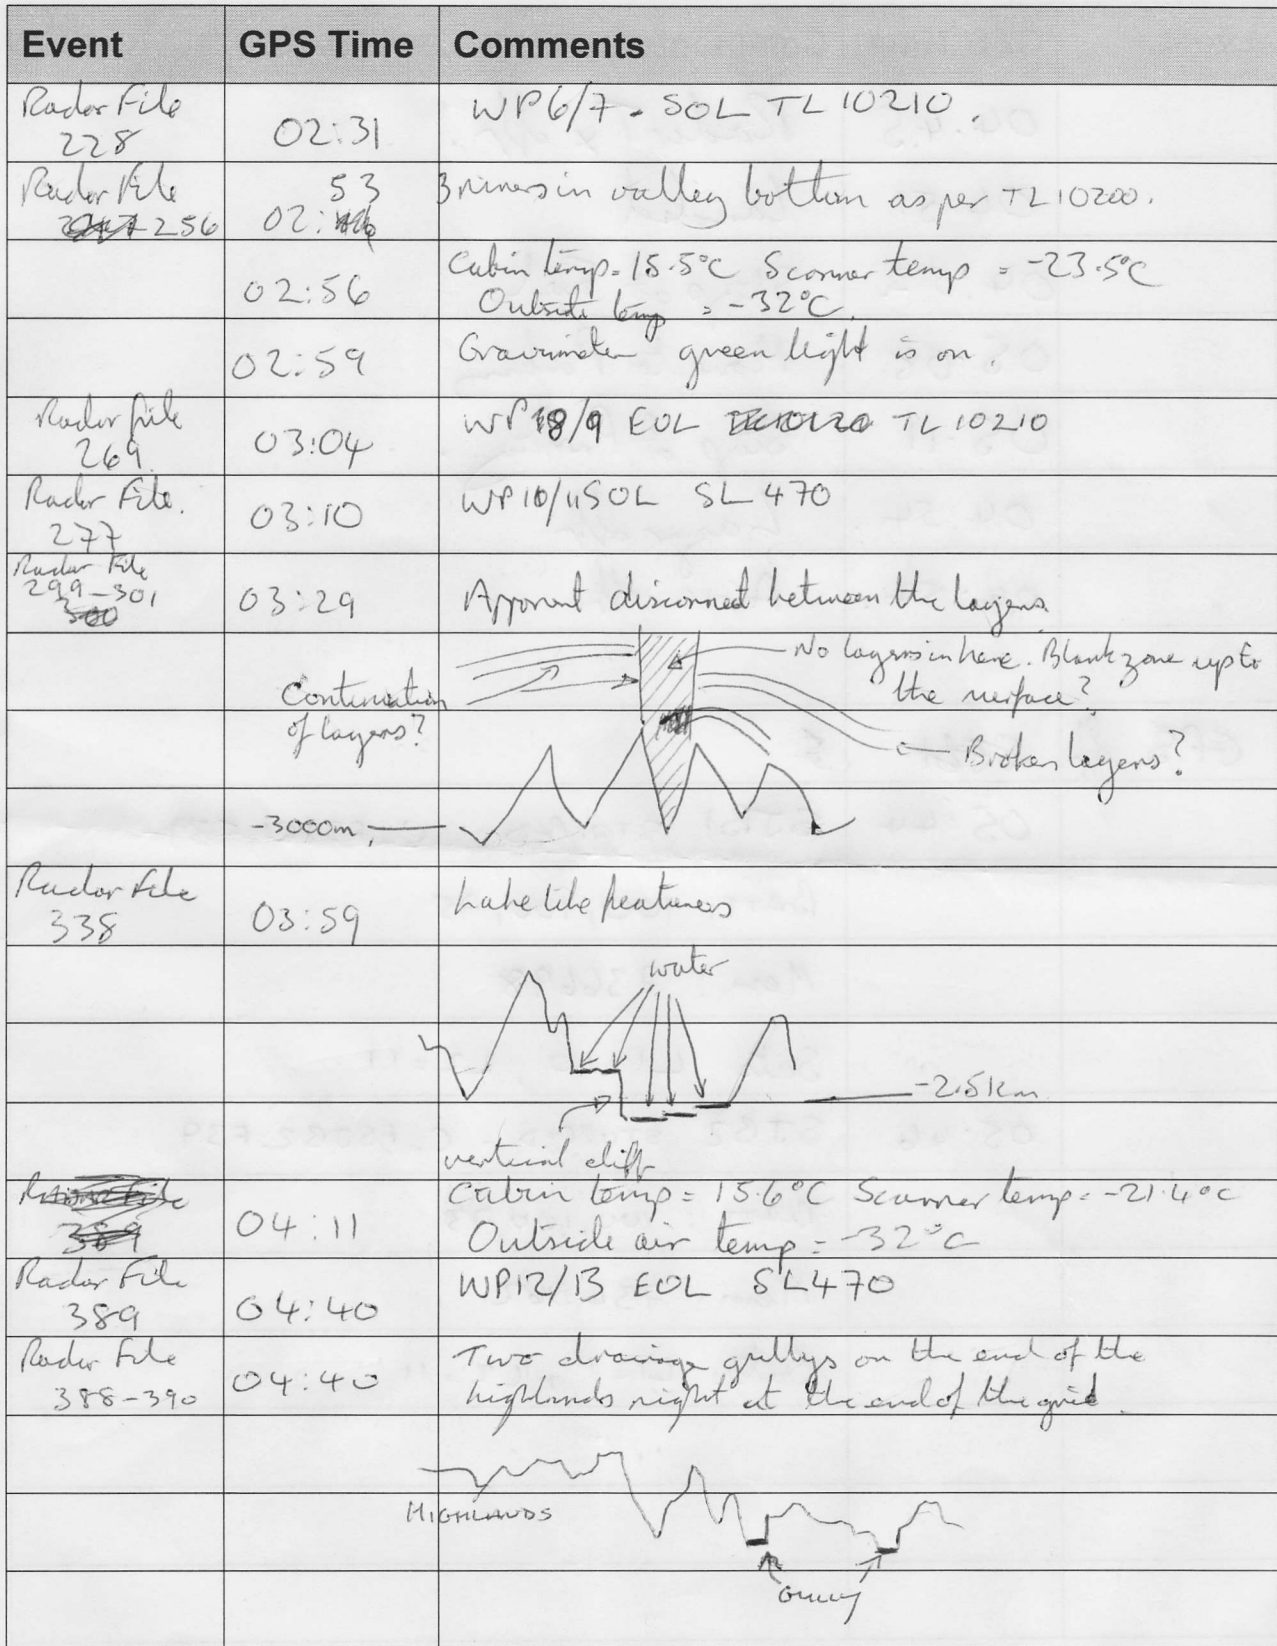 Event GPS Time Comments
Radar File
228
02:31
WP6/7. SOL TL 10210.
Radar File
256
02:53
3 rivers in valley bottom as per TL10200.
02:56
Cabin temp = 15.5°C Scanner temp = -23.5°C
Outside temp = -32°C.
02:59
Gravimeter green light is on.
Radar file
269
03:04
WP 8/9 EOL TL 10210
Radar File.
277
03:10
WP10/11 SOL SL 470
Radar File
299-301
03:29
Apparent disconnect between the layers
No layers in here. Blank zone up to
the surface?
Continuation
of layers?
Broken layers?
-3000m
Radar File
338
03:59
Lake like features
water
-2.5km
vertical cliff
04:11
Cabin temp = 15.6°C Scanner temp = -21.4°C
Outside air temp = -32°C
Radar File
389
04:40
WP12/13 EOL SL470
Radar File
388-390
04:40
Two drainage gullys on the end of the
highlands right at the end of the grid.
HIGHLANDS
Gully